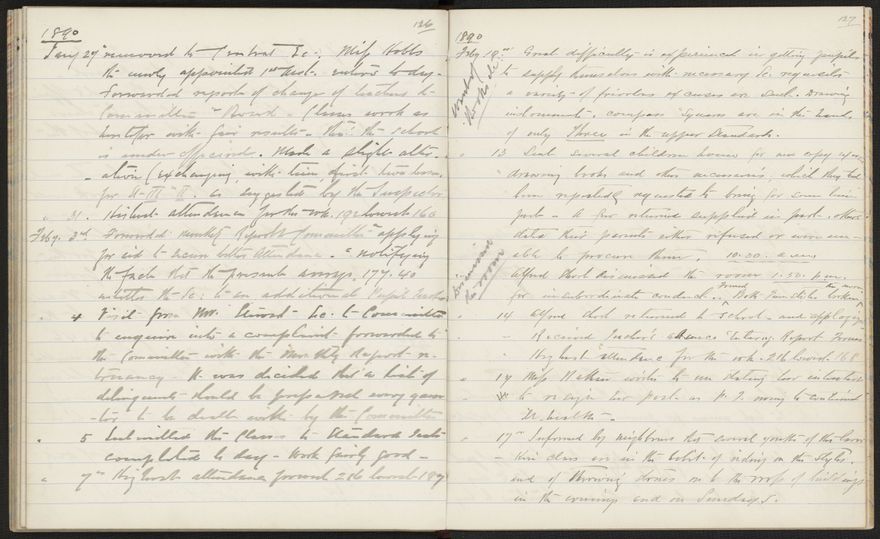 126
1890
Jany 27 removed to Central Sc: Miss Hobbs
the newly appointed 1st Asst. enters to-day.
Forwarded reports of change of teachers to
Committee & Board. Class work as
for wk. fair results. the School
is under officered. Made a slight alter
-ation (exchanging with
for St III & II as suggested by the Inspector
" 31. Highest attendance for the wk. 192 lowest 160
Feby. 3rd Forwarded monthly Report to Committee applying
for aid to secure better attendance. notifying
the fact that the present average 177.40
entitles the Sc: to an additional Pupil Teacher
" 4 Visit from Mr. Sc. Committee
to enquire into a complaint forwarded to
the Committee with the Monthly Report re
truancy. It was decided that a list of
delinquents should be prepared every quar
-ter to be dealt with by the Committee
" 5 Submitted the Classes to Standard Tests
completed to day - work fairly good -
" 7th Highest attendance for week 206 lowest 187
127
1890
Feby 10th Great difficulty is experienced in getting pupils
to supply themselves with necessary Sc. requisites
a variety of frivolous excuses are sent. Drawing
instruments, compass & Squares are in the hands
of only Three in the upper Standards.
" 13 Sent several children home for new copy &
drawing books and other necessaries, which they had
been repeatedly requested to bring for some time
past - A few returned supplied in part. others
stated their parents either refused or were un-
able to procure them. 10.30. a.m.
Dismissed the room
Alfred Short dismissed the room 1.50. p.m.
for insubordinate conduct.
" 14 Alfred Short returned to School and apologized
" Received Teacher's Absence & Salary Report Forms
Highest attendance for the wk. 216 lowest 168
" 14 Miss writes to me stating her intention
to resign her post as P. T. owing to continued
Ill health -
" 17th Informed by neighbours that several youths of the
class are in the habit of riding on the Styles.
and of throwing stones on to the roof of buildings
in the evenings and on Sundays.